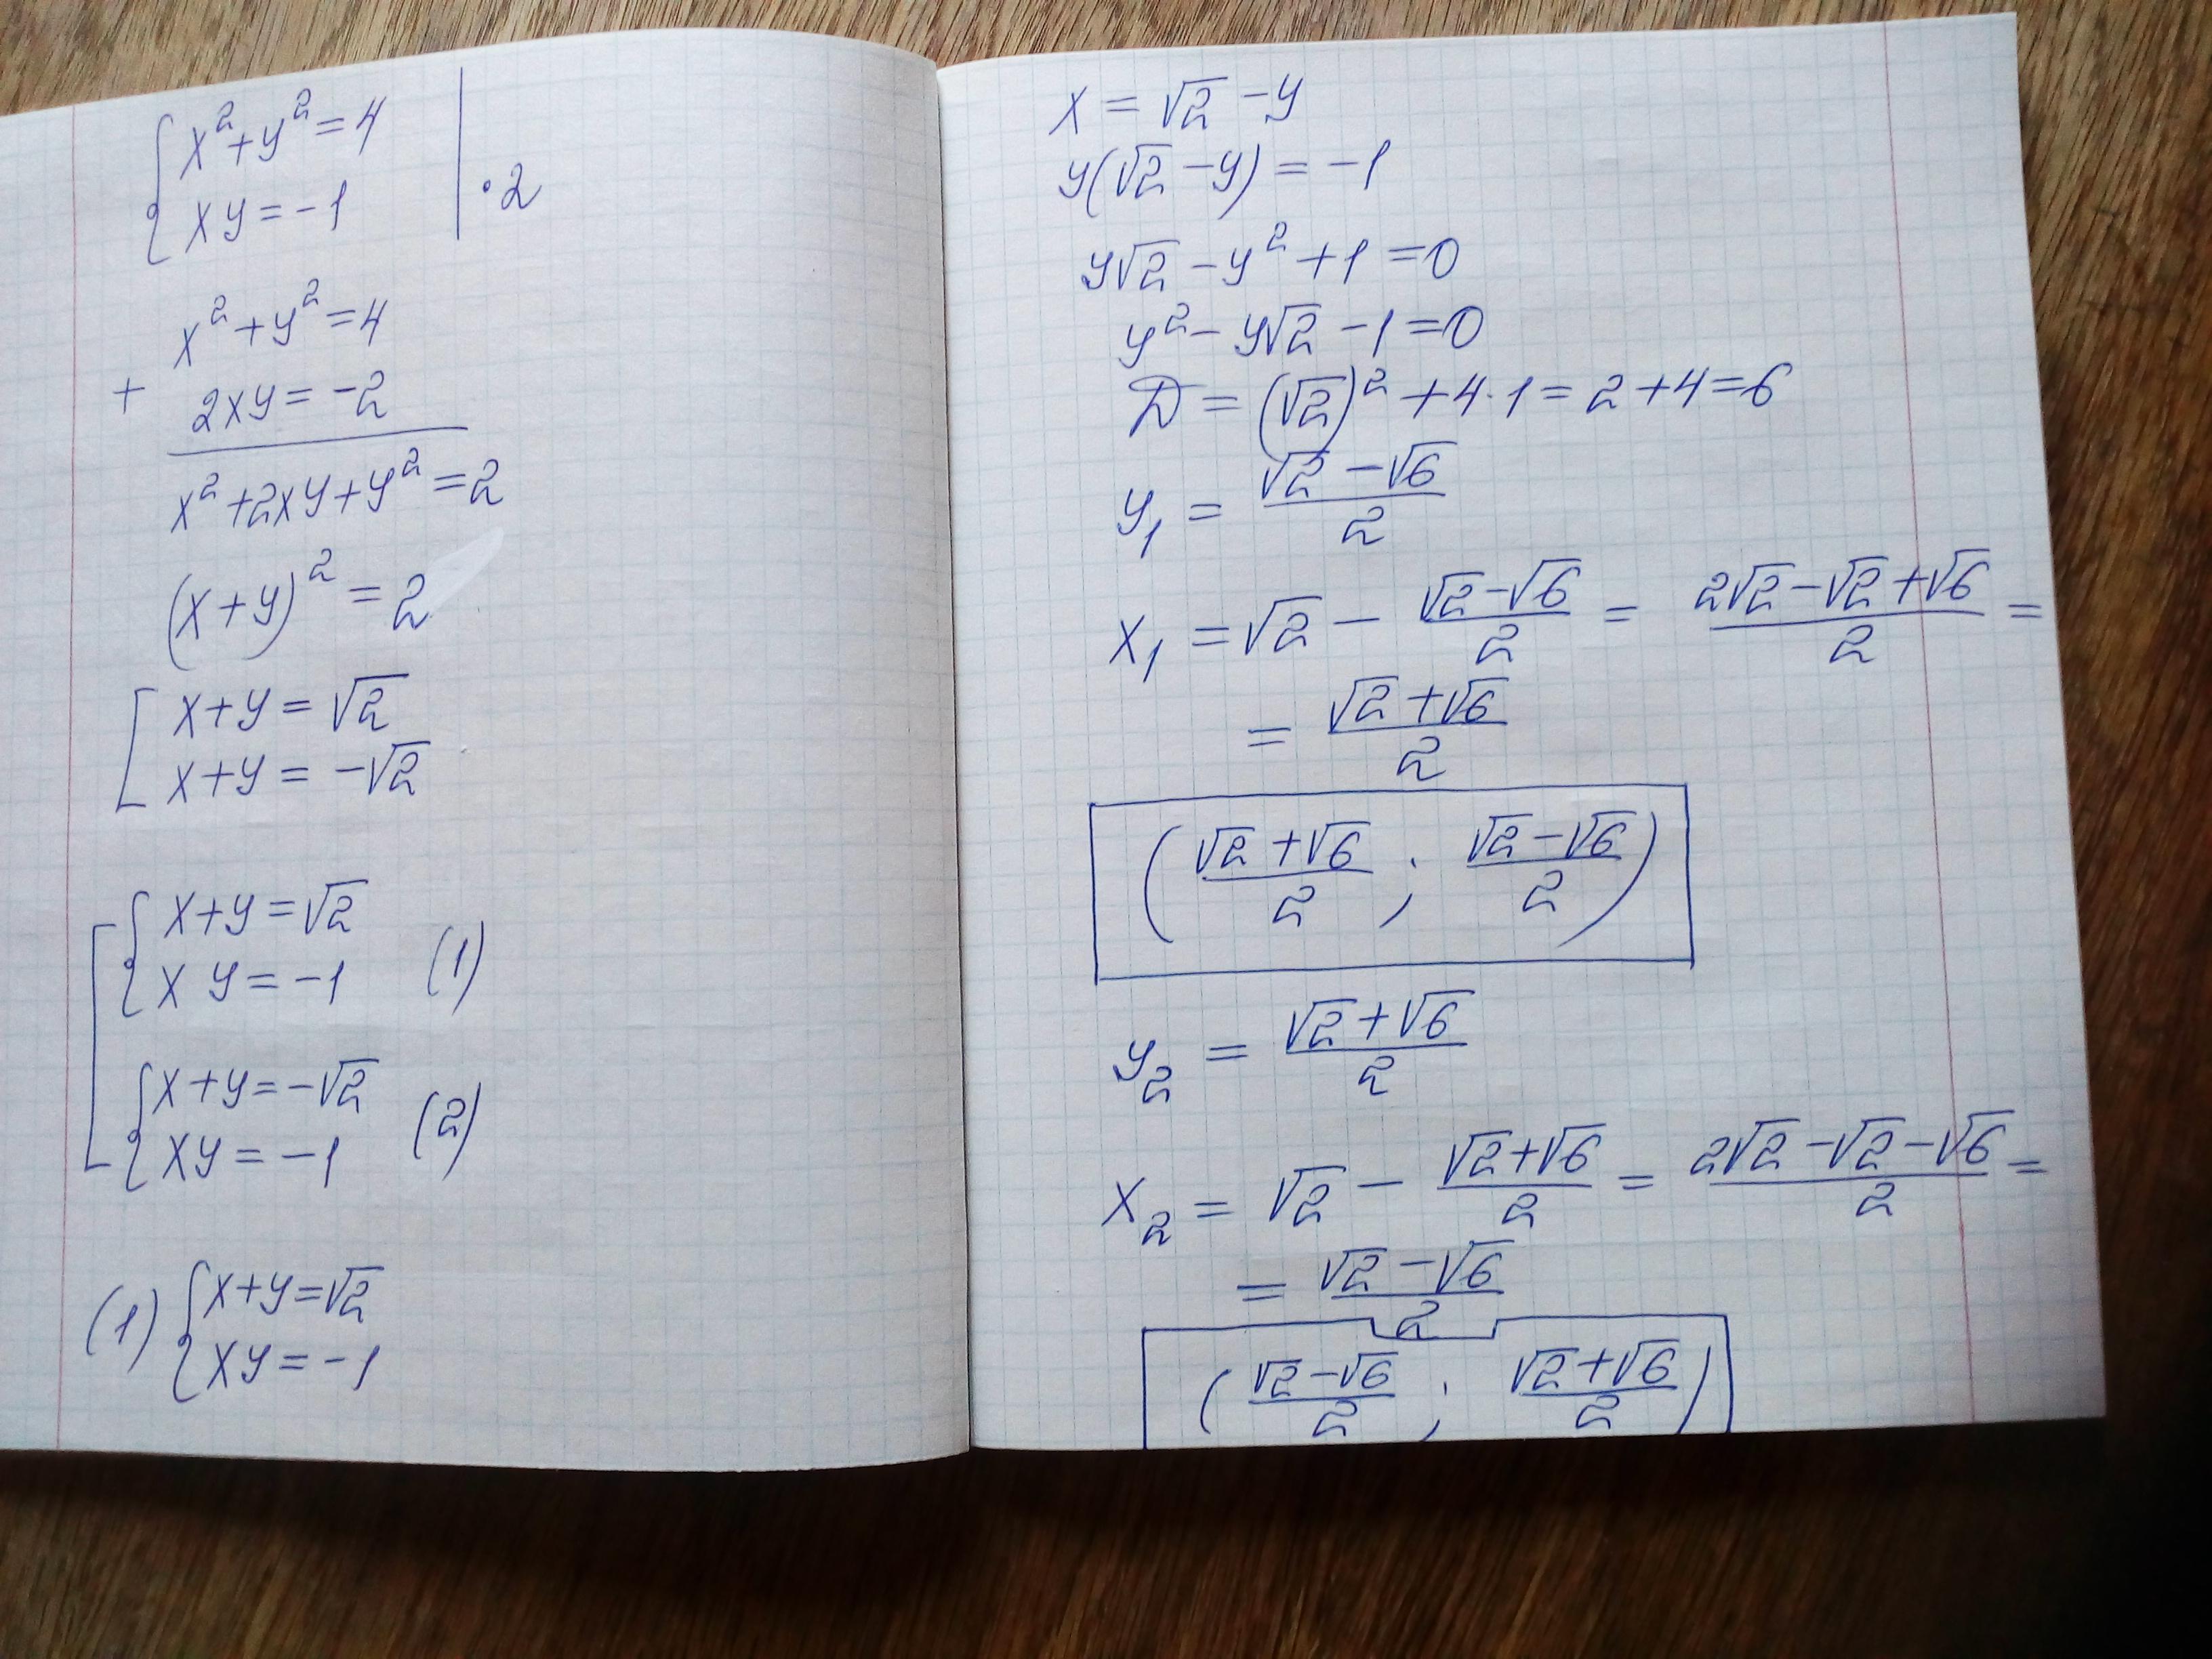 x² + y² = 4
xy = -1 | · 2
x² + y² = 4
+
2xy = -2
x² + 2xy + y² = 2
(x + y)² = 2
x + y = √2
x + y = -√2
x + y = √2
xy = -1 (1)
x + y = -√2
xy = -1 (2)
(1) x + y = √2
xy = -1
x = √2 - y
y(√2 - y) = -1
y√2 - y² + 1 = 0
y² - y√2 - 1 = 0
D = (√2)² + 4 · 1 = 2 + 4 = 6
y₁ = (√2 - √6)/2
x₁ = √2 - (√2 - √6)/2 = (2√2 - √2 + √6)/2 =
= (√2 + √6)/2
((√2 + √6)/2 ; (√2 - √6)/2)
y₂ = (√2 + √6)/2
x₂ = √2 - (√2 + √6)/2 = (2√2 - √2 - √6)/2 =
= (√2 - √6)/2
((√2 - √6)/2 ; (√2 + √6)/2)